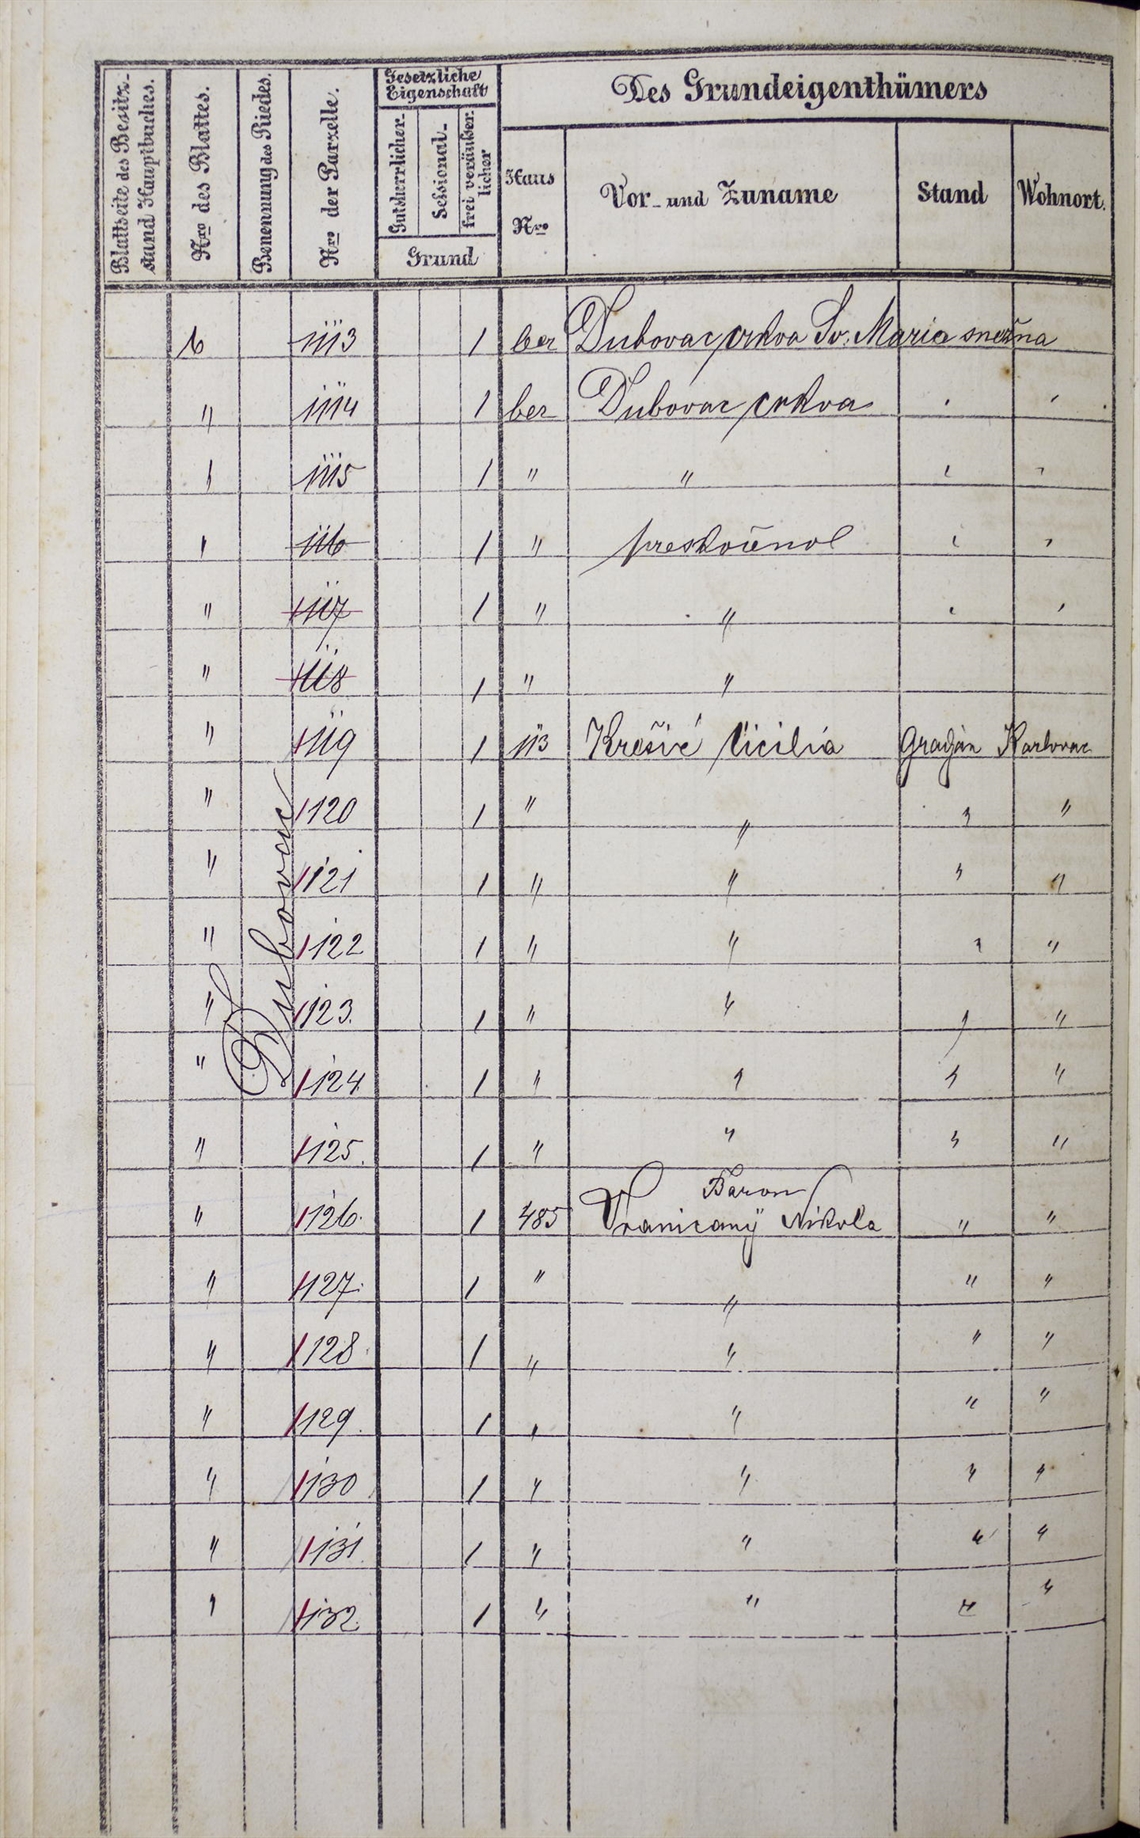 Blattseite des Besitz-
stand Hauptbuches.
Nro des Blattes.
Benennung des Riedes.
Nro der Parzelle.
Gesetzliche
Eigenschaft
Gutsherrlicher-
Sessional-
frei veräußer-
licher
Grund
Des Grundeigenthümers
Haus
Nro
Vor- und Zuname
Stand
Wohnort.
Dubovac
6 1113 1 ber Dubovac crkva Sv. Maria snežna
" 1114 1 ber Dubovac crkva
1115 1 " "
1116 1 " preskočnol
" 1117 1 " "
" 1118 1 " "
" 1119 1 113 Krešić Cicilia Gradjan Karlovac
" 1120 1 " " " "
" 1121 1 " " " "
" 1122 1 " " " "
" 1123. 1 " " " "
" 1124 1 " " " "
" 1125. 1 " " " "
Baron
" 1126. 1 485 Vranicanÿ Nikola " "
" 1127. 1 " " " "
" 1128. 1 " " " "
" 1129. 1 " " " "
" 1130 1 " " " "
" 1131. 1 " " " "
" 1132. 1 " " " "